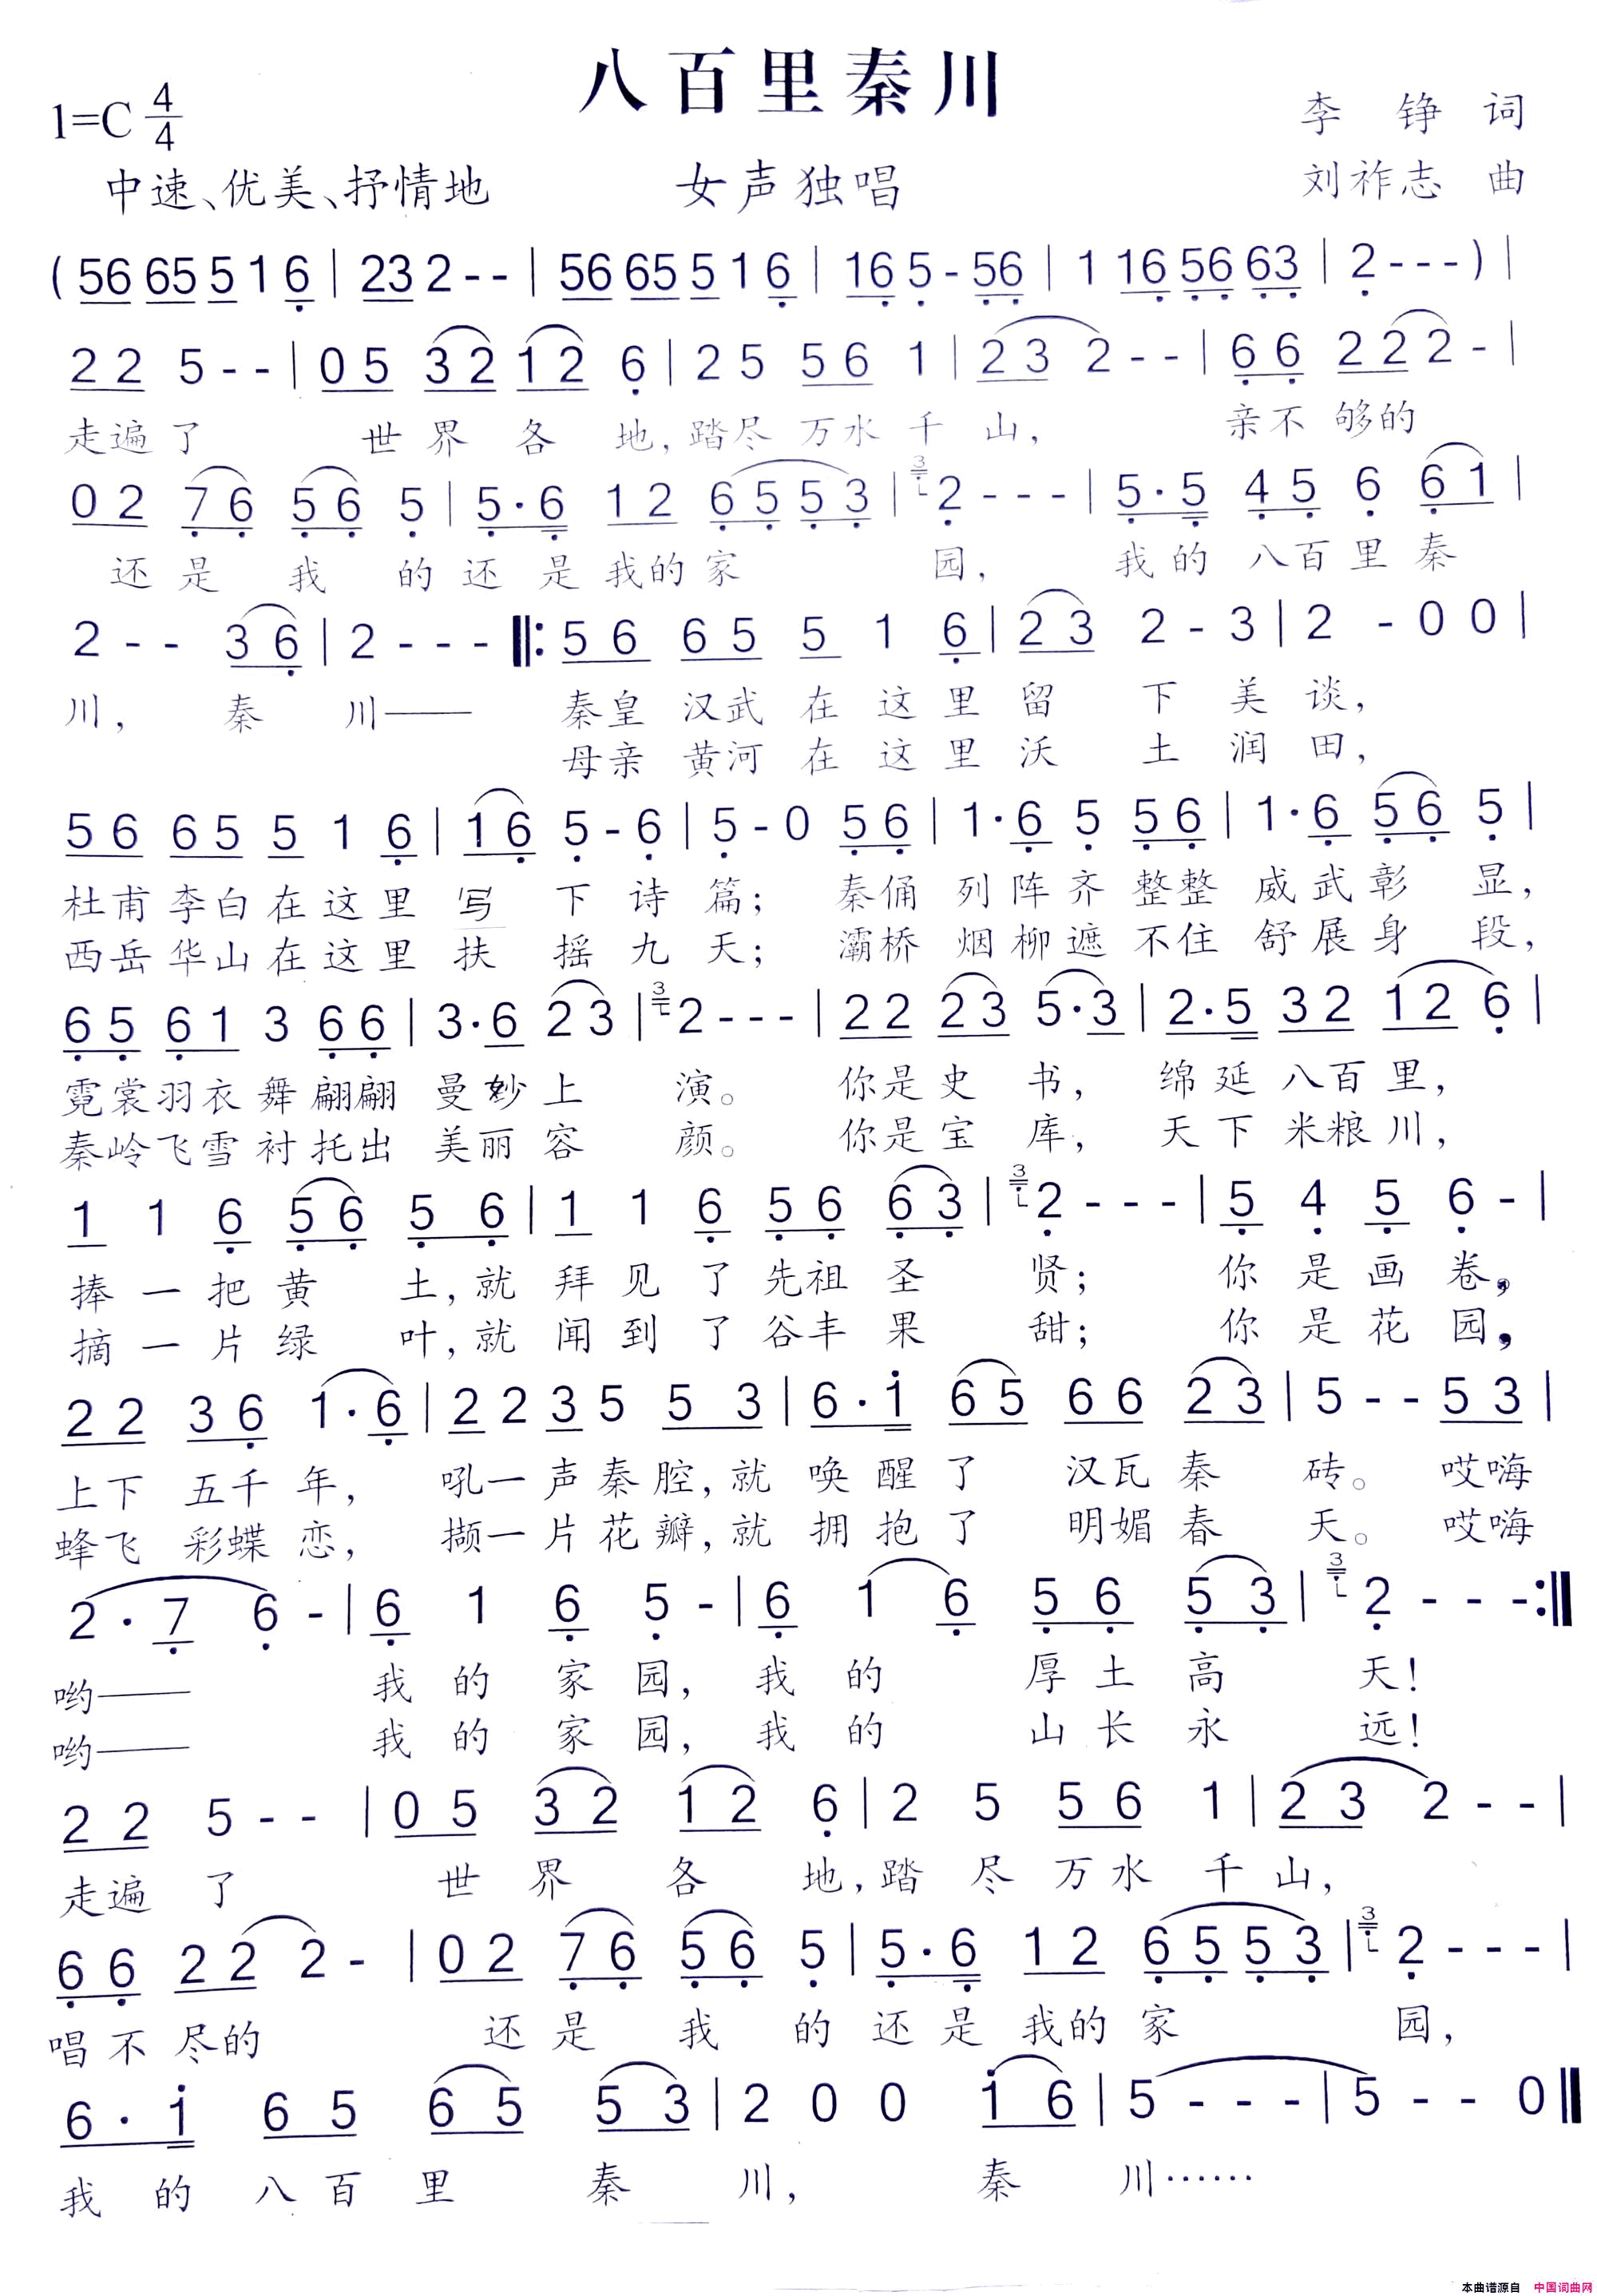 八百里秦川
1=C 4/4
李铮 词
中速、优美、抒情地
女声独唱
刘祚志 曲
(56 65 5 1 6 | 23 2 - - | 56 65 5 1 6 | 16 5 - 56 | 1 16 56 63 | 2 - - - ) |
2 2 5 - - | 0 5 3 2 1 2 6 | 2 5 5 6 1 | 2 3 2 - - | 6 6 2 2 2 - |
走遍了 世界各地,踏尽万水千山, 亲不够的
0 2 7 6 5 6 5 | 5 · 6 1 2 6 5 5 3 | 3 2 - - - | 5 · 5 4 5 6 6 1 |
还是我的还是我的家园, 我的八百里秦
2 - - 3 6 | 2 - - - ‖: 5 6 6 5 5 1 6 | 2 3 2 - 3 | 2 - 0 0 |
川, 秦川—— 秦皇汉武在这里留下美谈,
母亲黄河在这里沃土润田,
5 6 6 5 5 1 6 | 1 6 5 - 6 | 5 - 0 5 6 | 1 · 6 5 5 6 | 1 · 6 5 6 5 |
杜甫李白在这里写下诗篇; 秦俑列阵齐整整威武彰显,
西岳华山在这里扶摇九天; 灞桥烟柳遮不住舒展身段,
6 5 6 1 3 6 6 | 3 · 6 2 3 | 3 2 - - - | 2 2 2 3 5 · 3 | 2 · 5 3 2 1 2 6 |
霓裳羽衣舞翩翩曼妙上演。 你是史书, 绵延八百里,
秦岭飞雪衬托出美丽容颜。 你是宝库, 天下米粮川,
1 1 6 5 6 5 6 | 1 1 6 5 6 6 3 | 3 2 - - - | 5 4 5 6 - |
捧一把黄土,就拜见了先祖圣贤; 你是画卷,
摘一片绿叶,就闻到了谷丰果甜; 你是花园,
2 2 3 6 1 · 6 | 2 2 3 5 5 3 | 6 · 1 6 5 6 6 2 3 | 5 - - 5 3 |
上下五千年, 吼一声秦腔,就唤醒了汉瓦秦砖。哎嗨
蜂飞彩蝶恋, 撷一片花瓣,就拥抱了明媚春天。哎嗨
2 · 7 6 - | 6 1 6 5 - | 6 1 6 5 6 5 3 | 3 2 - - - :‖
哟—— 我的家园,我的厚土高天!
哟—— 我的家园,我的山长永远!
2 2 5 - - | 0 5 3 2 1 2 6 | 2 5 5 6 1 | 2 3 2 - - |
走遍了 世界各地,踏尽万水千山,
6 6 2 2 2 - | 0 2 7 6 5 6 5 | 5 · 6 1 2 6 5 5 3 | 3 2 - - - |
唱不尽的 还是我的还是我的家园,
6 · 1 6 5 6 5 5 3 | 2 0 0 1 6 | 5 - - - | 5 - - 0 ‖
我的八百里秦川, 秦川……
本曲谱源自 中国词曲网